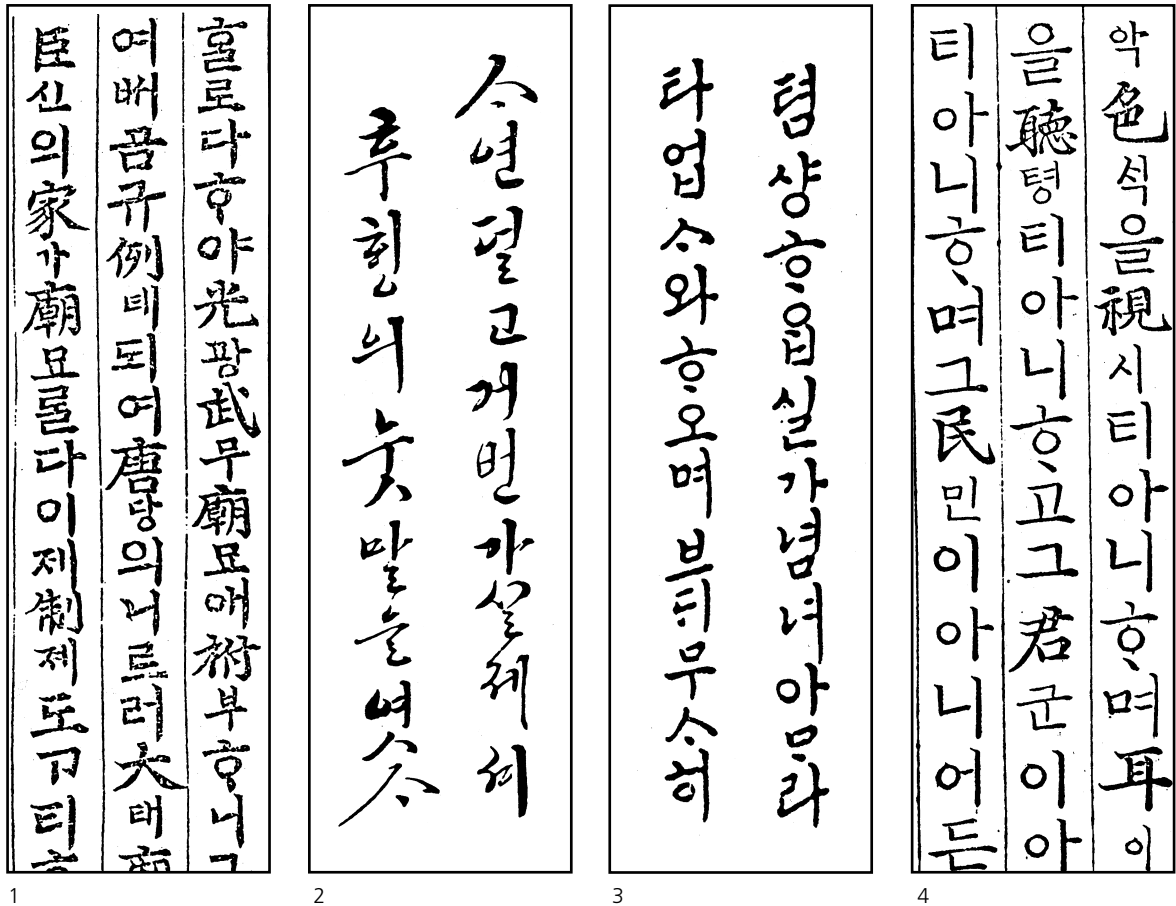 로다ᄒᆞ야光광武무廟묘애祔부ᄒᆞ니
여배곰규例톄되여唐당의니르러大태
臣신의家가廟묘ᄅᆞᆯ다이제制졔도ᄀᆞ티
1
ᄉᆞ연덜고거번가실제
후흰의눗말늘여
2
텸샹ᄒᆞᄋᆞᆸ실가념녀아ᄆᆞ라
타업ᄉᆞ와ᄒᆞ오며브듸무ᄉᆞ히
3
악色ᄉᆡᆨ을視시티아니ᄒᆞ며耳이
을聽텽티아니ᄒᆞ고그君군이아
티아니ᄒᆞ며그民민이아니어든
4